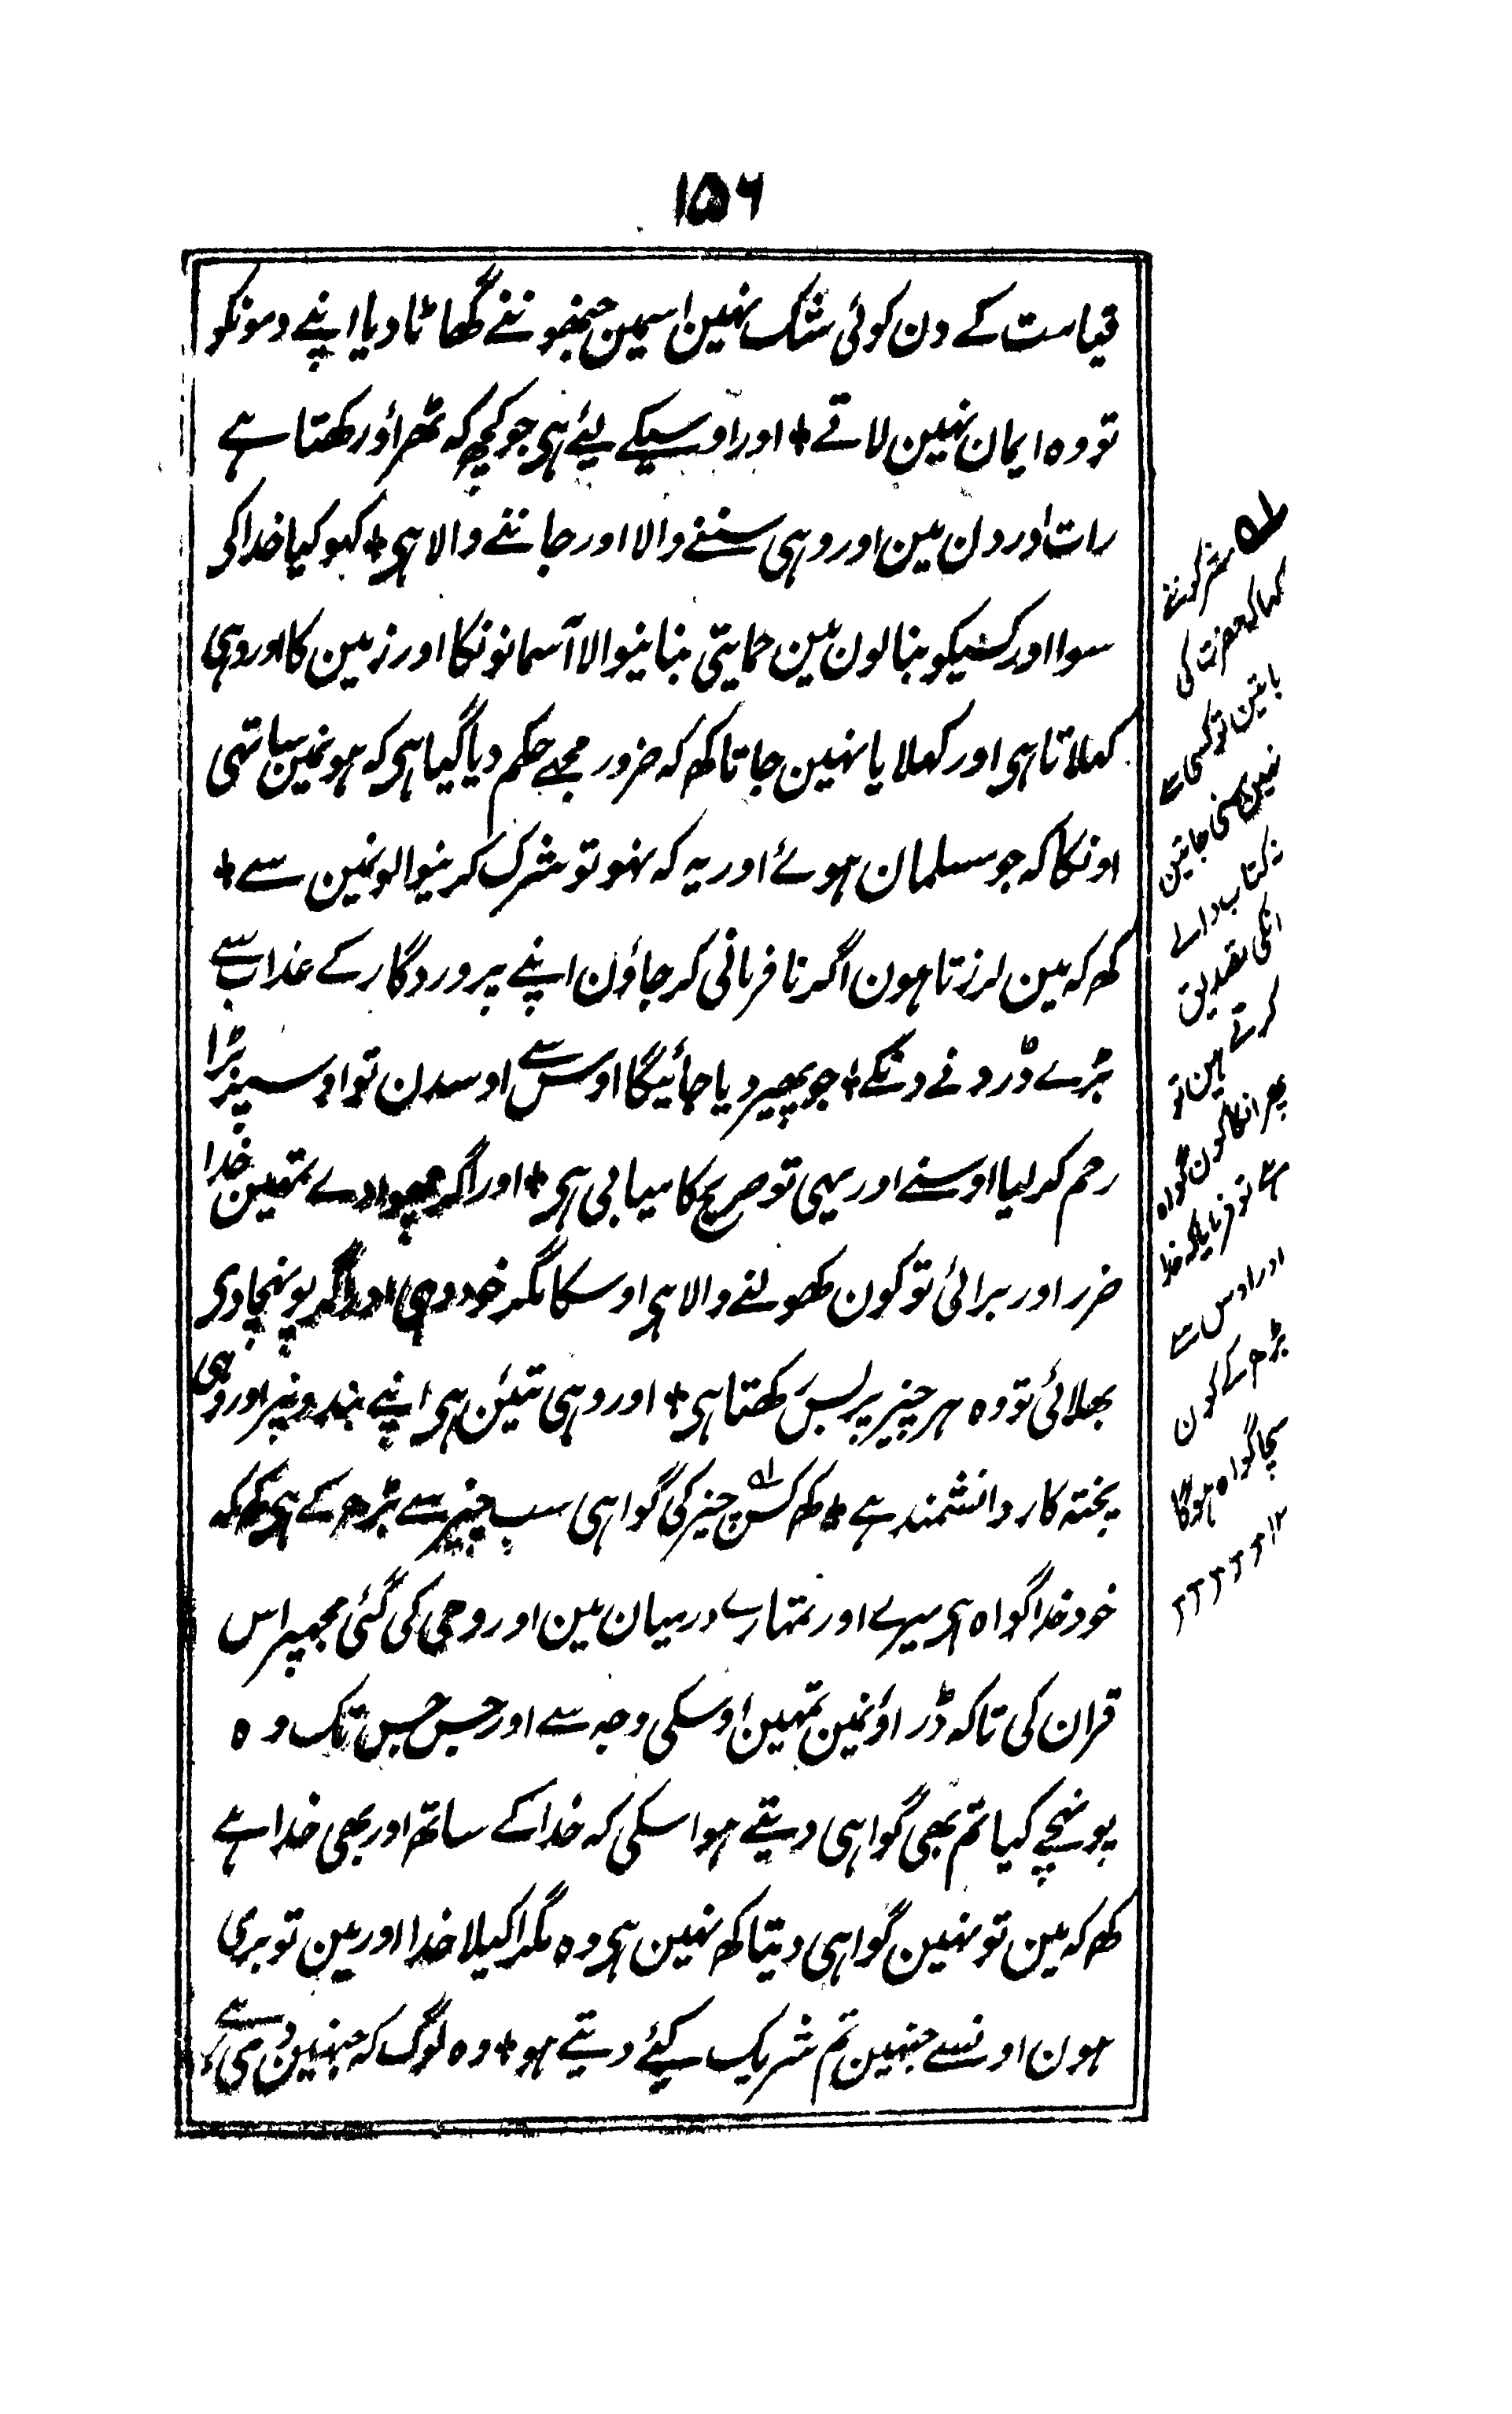 ۱۵۶
قیامت کے دن کوئی شک نہین اسمین جنھوننے گھاٹا دیا اپنے دمونکو
تو وہ ایمان نہین لاتے + اور اوسیکے لیئے ہی جو کچھ کہ ٹھراؤ رکھتا ہے
رات اور دن مین اور وہی سننے والا اور جاننے والا ہی + کہو کیا خدا کی
سوا اور کسیکو بنا لون مین حمایتی بنانیوالا آسمانونکا اور زمین کا اور وہی
کہلاتا ہی اور کہلایا نہین جاتا کھ کہ ضرور مجھے حکم دیا گیا ہی کہ ہونمین ساتھی
اونکا کہ جو مسلمان ہوئے اور یہ کہ نہو تو شرک کرنیوالونمین سے +
کھ کہ مین لرزتا ہون اگر نافرمانی کر جاؤن اپنے پروردگار کے عذاب سے
بڑے ڈرونے دنکے + جو پھیر دیا جائیگا اوس سے اوسدن تو اوسپر بڑا
رحم کر لیا اوسنے اور یہی تو صریح کامیابی ہی + اور اگر چھوادے تمہین خدا
ضرر اور برائی تو کون کھولنے والا ہی اوسکا مگر خود وہی اور اگر پونہچاوی
بھلائی تو وہ ہر چیز پر بس رکھتا ہی + اور وہی تیئن ہی اپنے بندونپر اور وہی
پختہ کار دانشمند ہے + کھ کس چیز کی گواہی سب چیز سے بڑھ کے ہی کھ کہ
خود خدا گواہ ہی میرے اور تمہارے درمیان مین اور وحی کی گئی مجھپر اس
قران کی تاکہ ڈراؤنمین تمہین اوسکی وجہ سے اور جس جس تک وہ
پونہچے کیا تم بھی گواہی دیتے ہو اسکی کہ خدا کے ساتھ اور بھی خدا ہے
کھ کہ مین تو نہین گواہی دیتا کھ نہین ہی وہ مگر اکیلا خدا اور مین تو بری
ہون اونسے جنہین تم شریک کیئے دیتے ہو + وہ لوگ کہ جنہین دی ہے
مشرکوننے
کہا کہ حضرت کی
باتین تو کسی سے
نہین سنی جاتین
نہ کتاب والے
انکی تصدیق
کرتے ہین تو
پھر انکا کون گواہ
ہے تو فرمایا کہ خدا
اور اوس سے
بڑھ کے کون
سچا گواہ ہوگا
۱۲